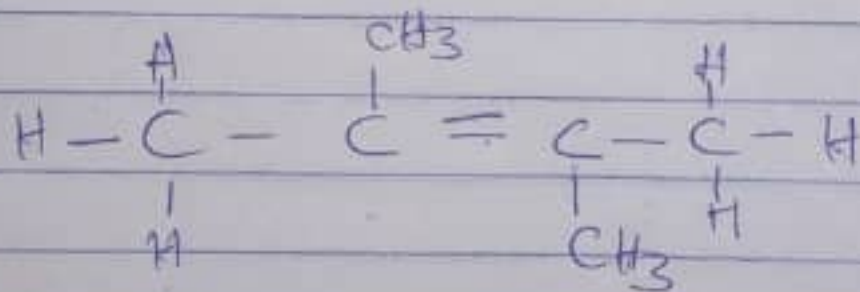 H CH3 H
H - C - C = C - C - H
H CH3 H